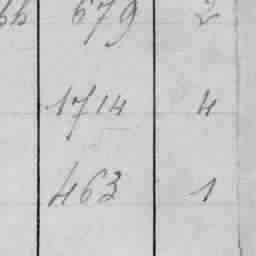 679 2
1714 4
463 1